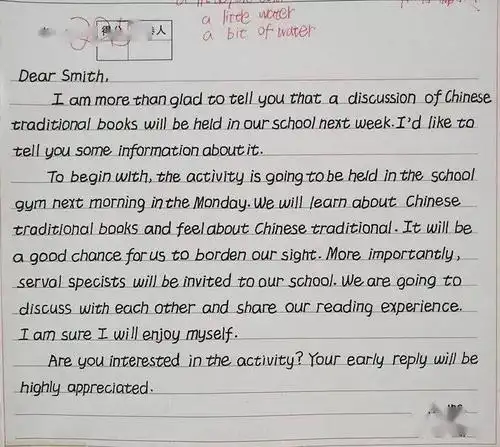 a little water
a bit of water
得分
人
Dear Smith,
I am more than glad to tell you that a discussion of Chinese
traditional books will be held in our school next week. I'd like to
tell you some information about it.
To begin with, the activity is going to be held in the school
gym next morning in the Monday. We will learn about Chinese
traditional books and feel about Chinese traditional. It will be
a good chance for us to borden our sight. More importantly,
serval specists will be invited to our school. We are going to
discuss with each other and share our reading experience.
I am sure I will enjoy myself.
Are you interested in the activity? Your early reply will be
highly appreciated.